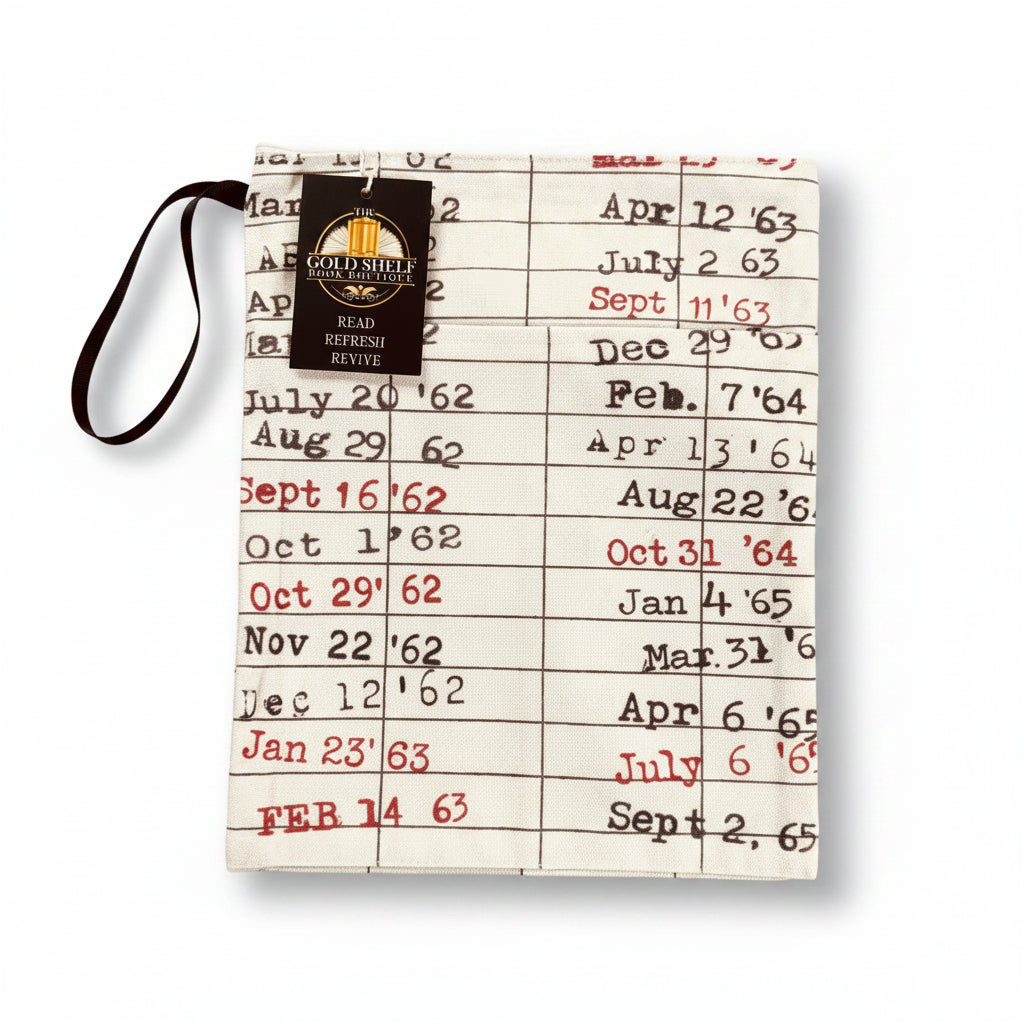 Mar 62
Mar 2
2
Ap 2
2
July 20 '62
Aug 29 62
Sept 16 '62
Oct 1 '62
Oct 29' 62
Nov 22 '62
Dec 12 '62
Jan 23' 63
FEB 14 63
Apr 12 '63
July 2 63
Sept 11 '63
Dec 29 '63
Feb. 7 '64
Apr 13 '64
Aug 22 '6
Oct 31 '64
Jan 4 '65
Mar. 31 '6
Apr 6 '65
July 6 '65
Sept 2, 65
THE
GOLD SHELF
BOOK BOUTIQUE
READ
REFRESH
REVIVE